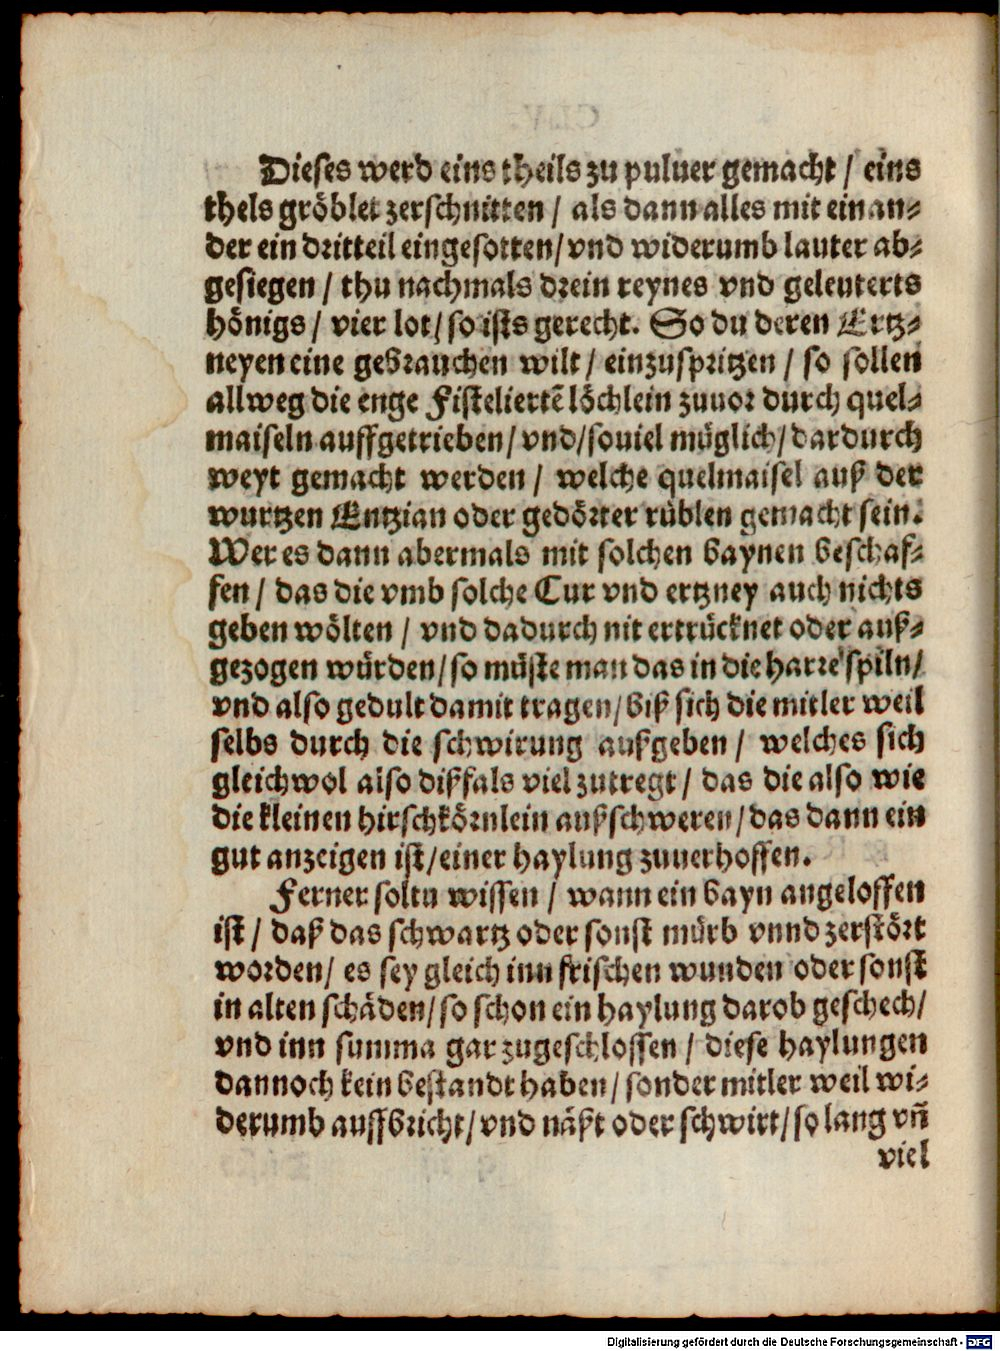 Dieses werd eins theils zu puluer gemacht / eins
thels gröblet zerschnitten / als dann alles mit einan⸗
der ein dritteil eingesotten / vnd widerumb lauter ab⸗
gesiegen / thu nachmals drein reynes vnd geleuterts
hönigs / vier lot / so ists gerecht. So du deren Ertz⸗
neyen eine gebrauchen wilt / einzuspritzen / so sollen
allweg die enge Fisteliertē löchlein zuuor durch quel⸗
maiseln auffgetrieben / vnd / souiel müglich / dardurch
weyt gemacht werden / welche quelmaisel auß der
wurtzen Entzian oder gedörter rüblen gemacht sein.
Wer es dann abermals mit solchen baynen beschaf⸗
fen / das die vmb solche Cur vnd ertzney auch nichts
geben wölten / vnd dadurch nit ertrücknet oder auß⸗
gezogen würden / so müste man das in die harre spiln /
vnd also gedult damit tragen / biß sich die mitler weil
selbs durch die schwirung außgeben / welches sich
gleichwol also dißfals viel zutregt / das die also wie
die kleinen hirschkörnlein außschweren / das dann ein
gut anzeigen ist / einer haylung zuuerhoffen.
Ferner soltu wissen / wann ein bayn angeloffen
ist / daß das schwartz oder sonst mürb vnnd zerstört
worden / es sey gleich inn frischen wunden oder sonst
in alten schäden / so schon ein haylung darob geschech /
vnd inn summa gar zugeschlossen / diese haylungen
dannoch kein bestandt haben / sonder mitler weil wi⸗
derumb auffbricht / vnd näßt oder schwirt / so lang vñ
viel
Digitalisierung gefördert durch die Deutsche Forschungsgemeinschaft - DFG